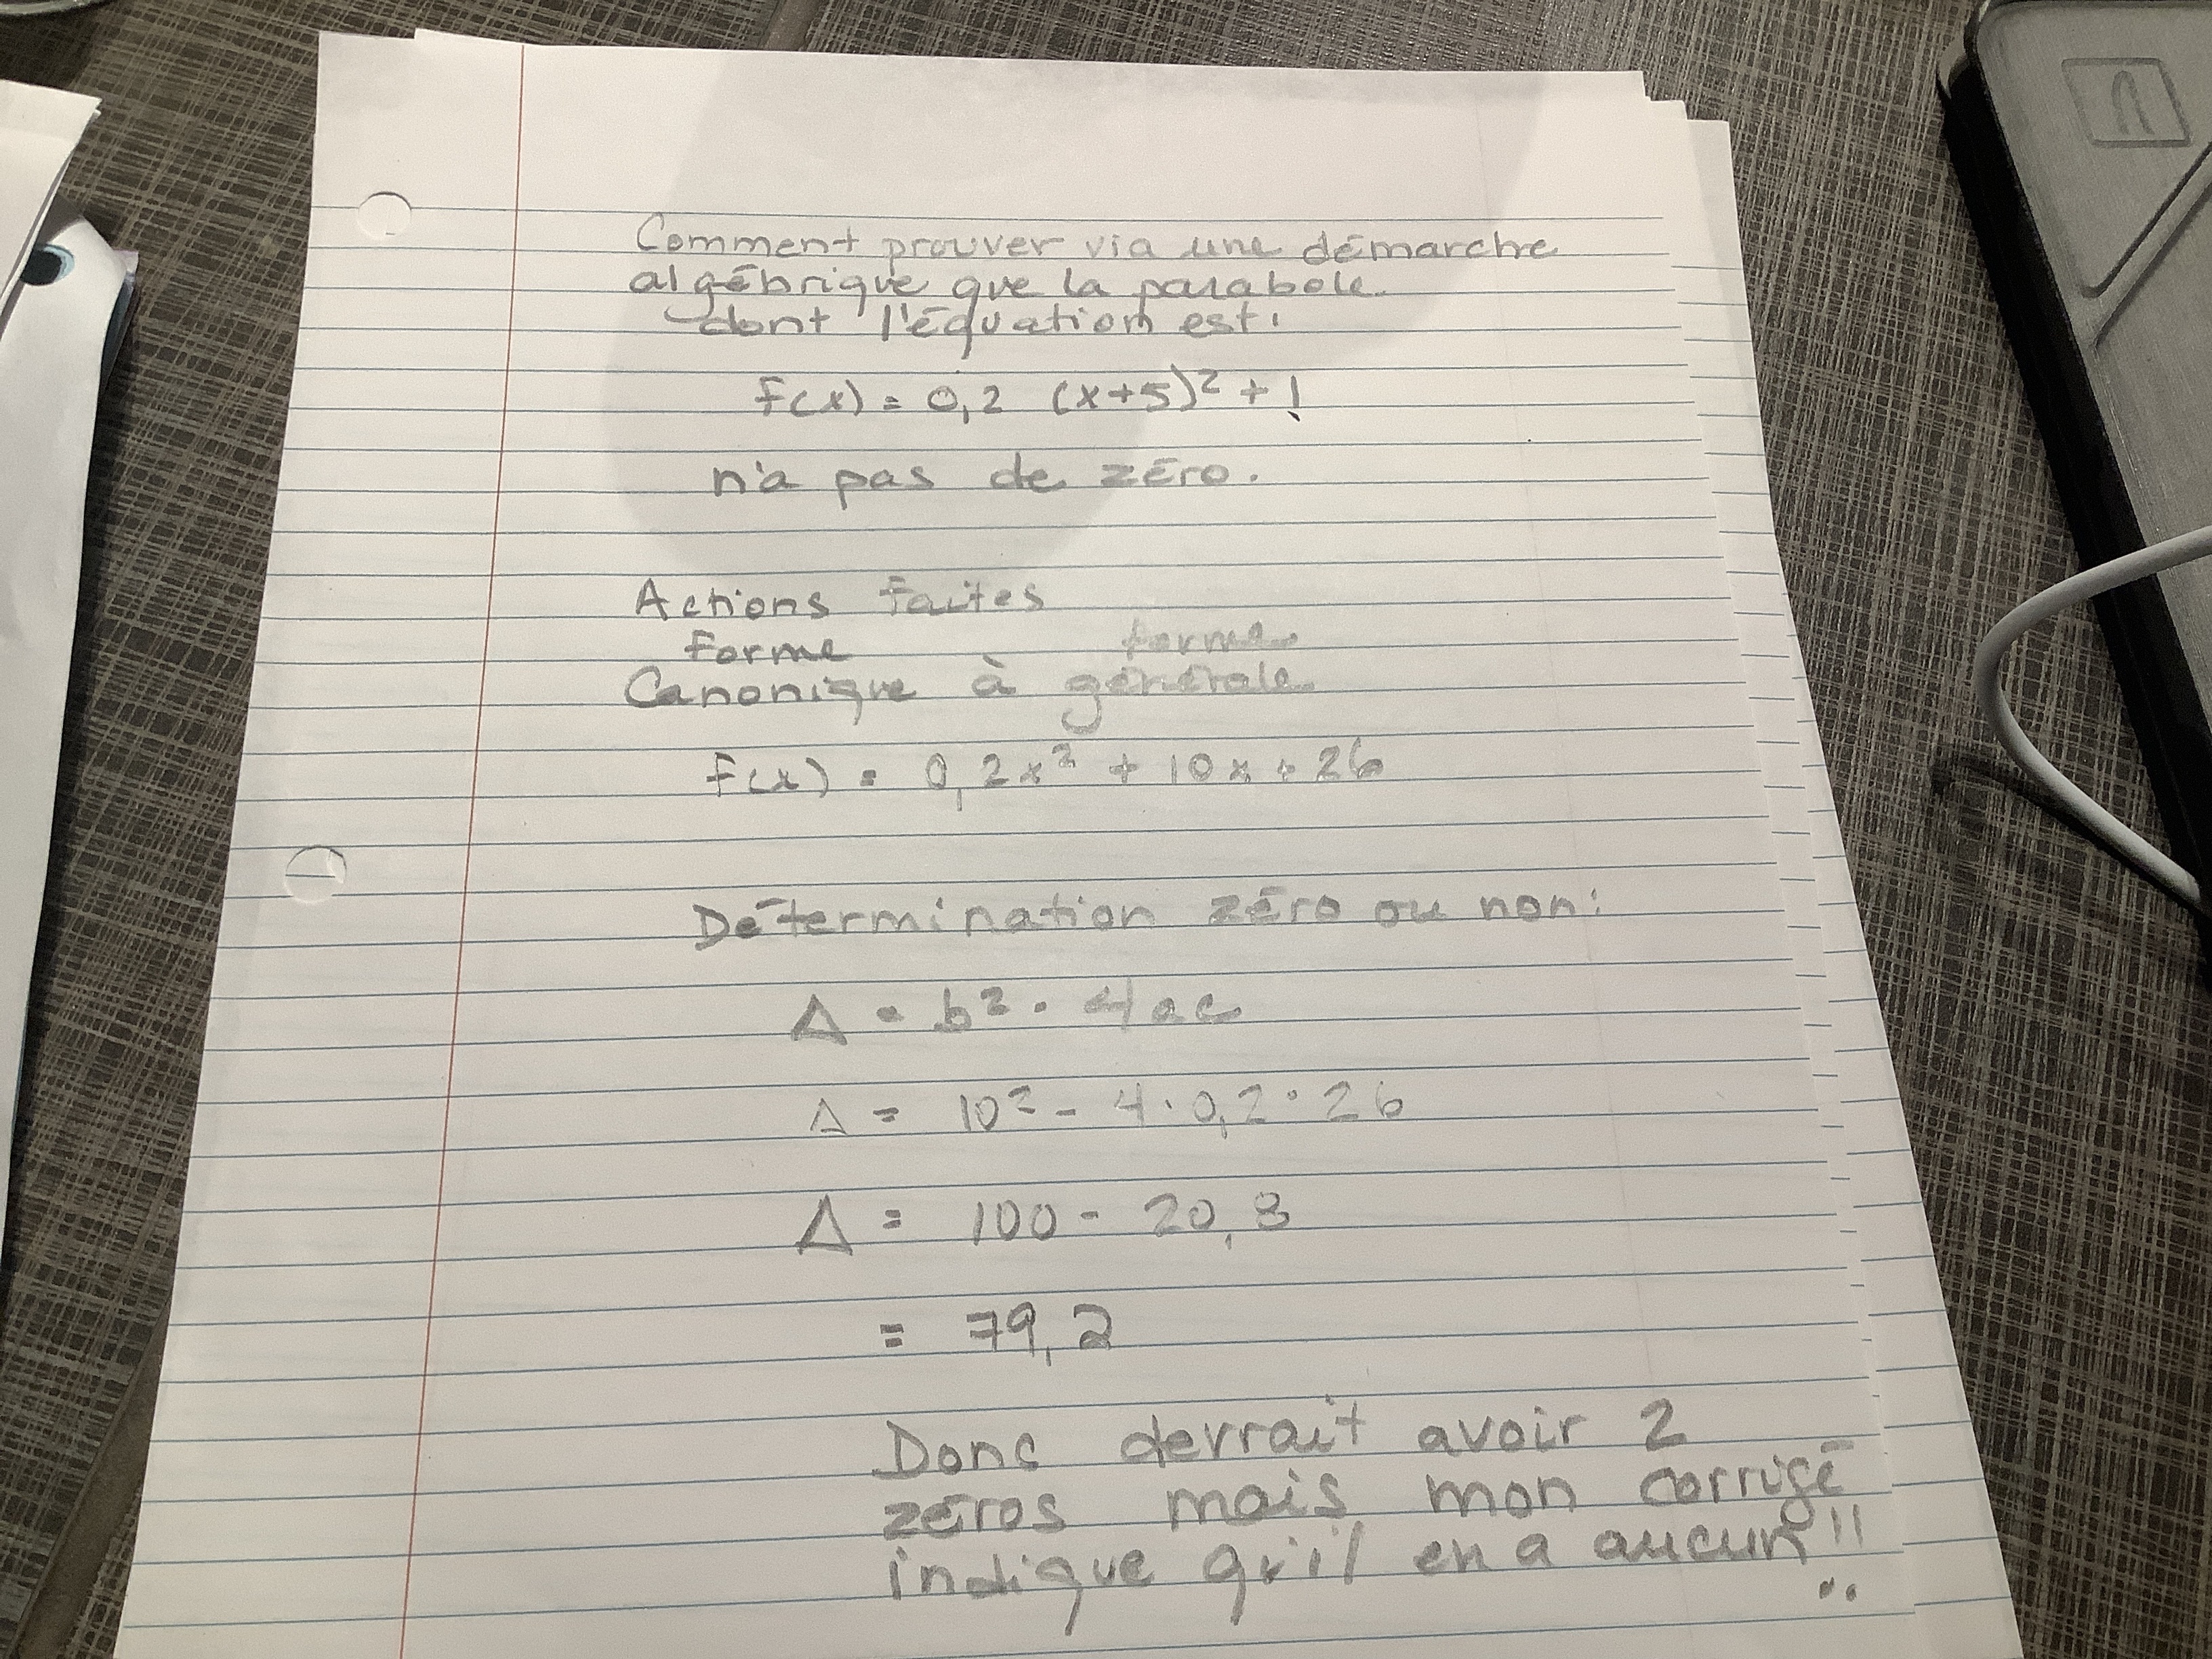 Comment prouver via une démarche
algébrique que la parabole
dont l'équation est:
f(x) = 0,2 (x+5)² + 1
n'a pas de zéro.
Actions faites
forme forme
Canonique à générale
f(x) = 0,2x² + 10x + 26
Détermination zéro ou non:
Δ = b² - 4ac
Δ = 10² - 4·0,2·26
Δ = 100 - 20,8
= 79,2
Donc devrait avoir 2
zéros mais mon corrigé
indique qu'il en a aucun!!